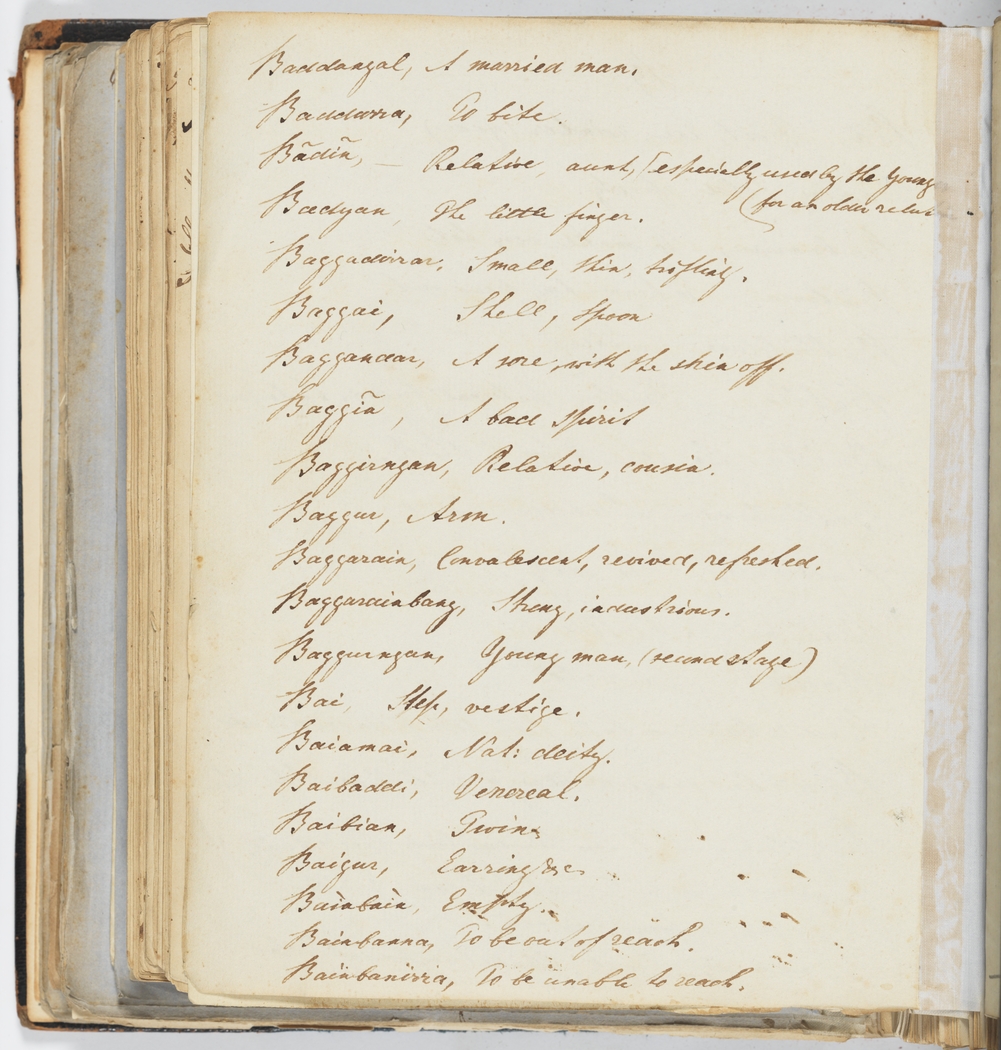 Baddangal, A married man.
Baddarra, To bite.
Bãdiñ, — Relative, aunt, (especially used by the young
(for an older relat
Badyan, The little finger.
Baggadirrar, Small, thin, trifling.
Baggai, Shell, spoon
Baggandar, A sore, with the skin off.
Baggiñ, A bad spirit
Baggirngan, Relative, cousin.
Baggur, Arm.
Baggarain, Convalescent, revived, refreshed.
Baggarainbang, Strong, industrious.
Baggurngan, Young man, (second stage)
Bai, Step, vestige.
Baiamai, Nat: deity.
Baibaddi, Venereal.
Baibian, Twins
Baigur, Earring &c.
Bainbain, Empty.
Bainbanna, To be out of reach.
Bainbanirra, To be unable to reach.